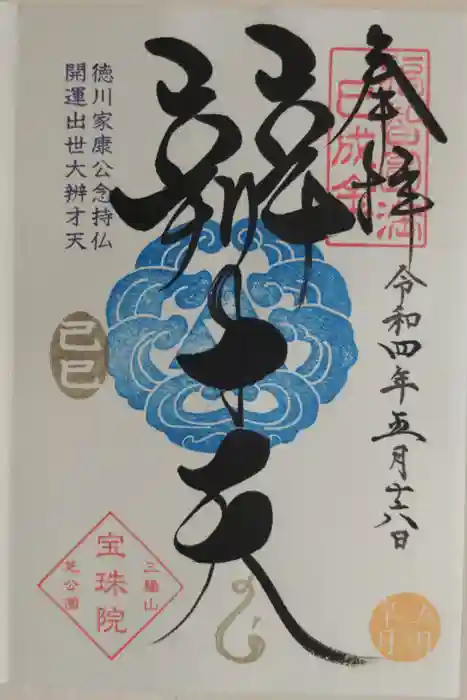 奉拝
令和四年五月十六日
辨才天
徳川家康公念持仏
開運出世大辨才天
己巳
三縁山
宝珠院
芝公園